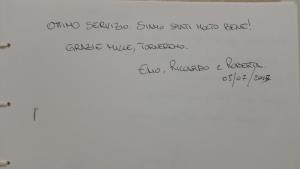 OTTIMO SERVIZIO SIAMO STATI MOLTO BENE!
GRAZIE MILLE, TORNEREMO.
RICCARDO E ROBERTA
03/07/